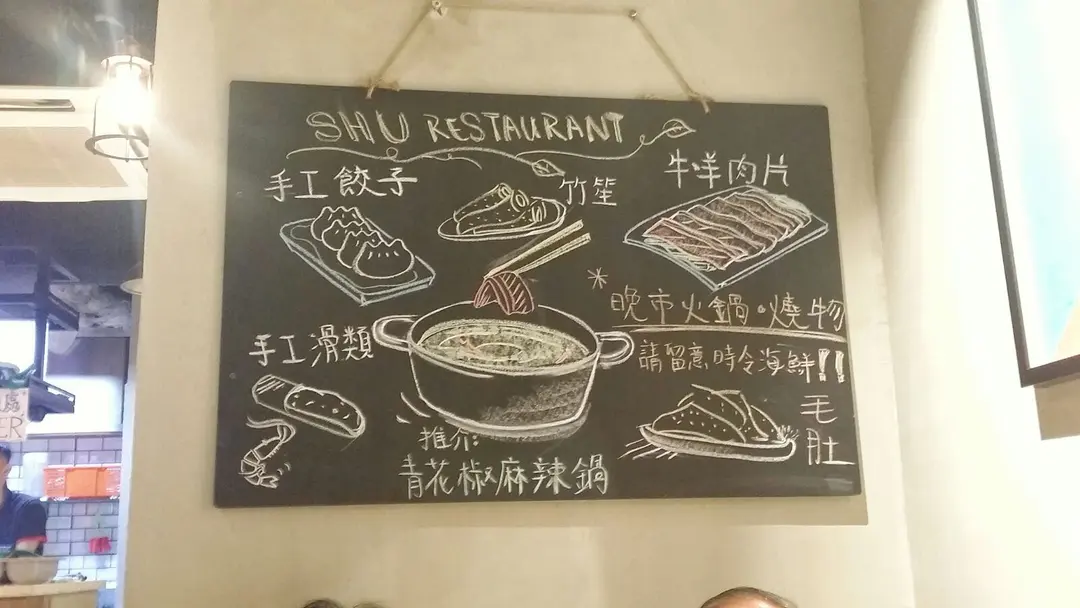 SHU RESTAURANT
手工餃子
竹笙
牛羊肉片
*晚市火鍋·燒物
請留意時令海鮮!!
手工滑類
毛肚
推介:
青花椒麻辣鍋
ER